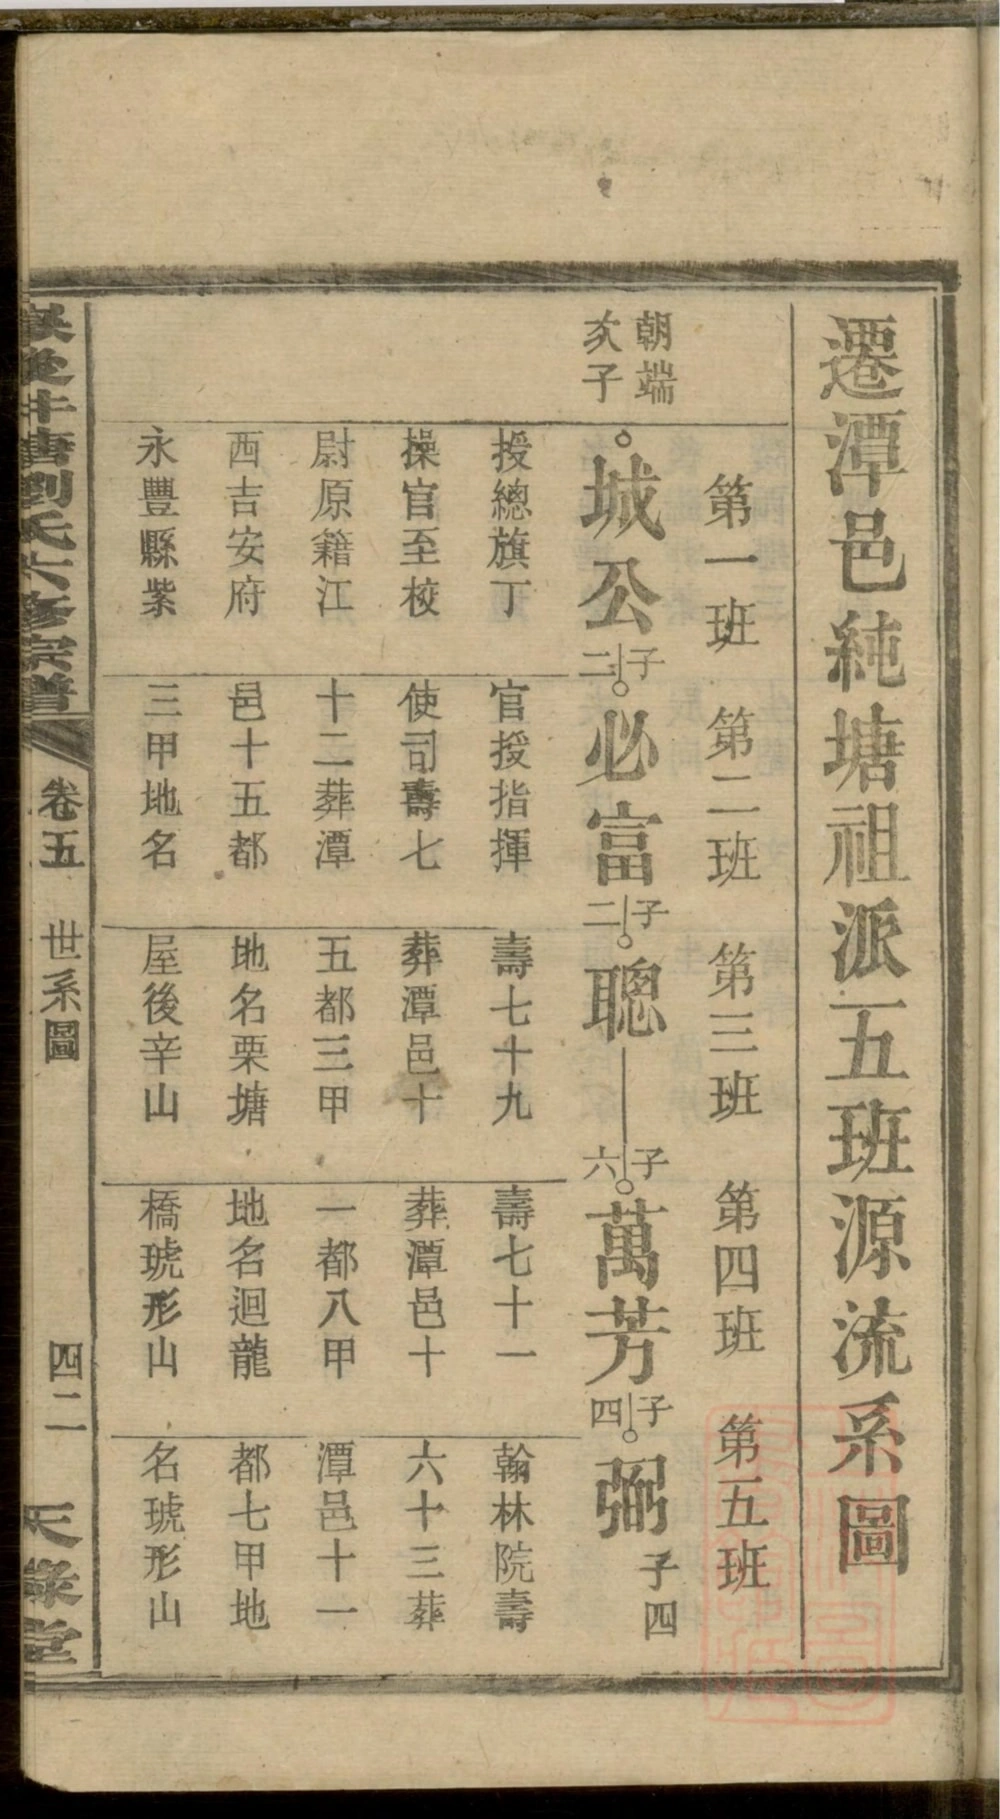 遷潭邑純塘祖派五班源流系圖
第一班 第二班 第三班 第四班 第五班
朝端
次子
城公 子二 必富 子二 聰 子六 萬芳 子四 弼 子四
授總旗丁
操官至校
尉原籍江
西吉安府
永豐縣紫
官授指揮
使司壽七
十二葬潭
邑十五都
三甲地名
壽七十九
葬潭邑十
五都三甲
地名栗塘
屋後辛山
壽七十一
葬潭邑十
一都八甲
地名迴龍
橋琥形山
翰林院壽
六十三葬
潭邑十一
都七甲地
名琥形山
塘劉氏六修宗譜 卷五 世系圖 四二 天祿堂